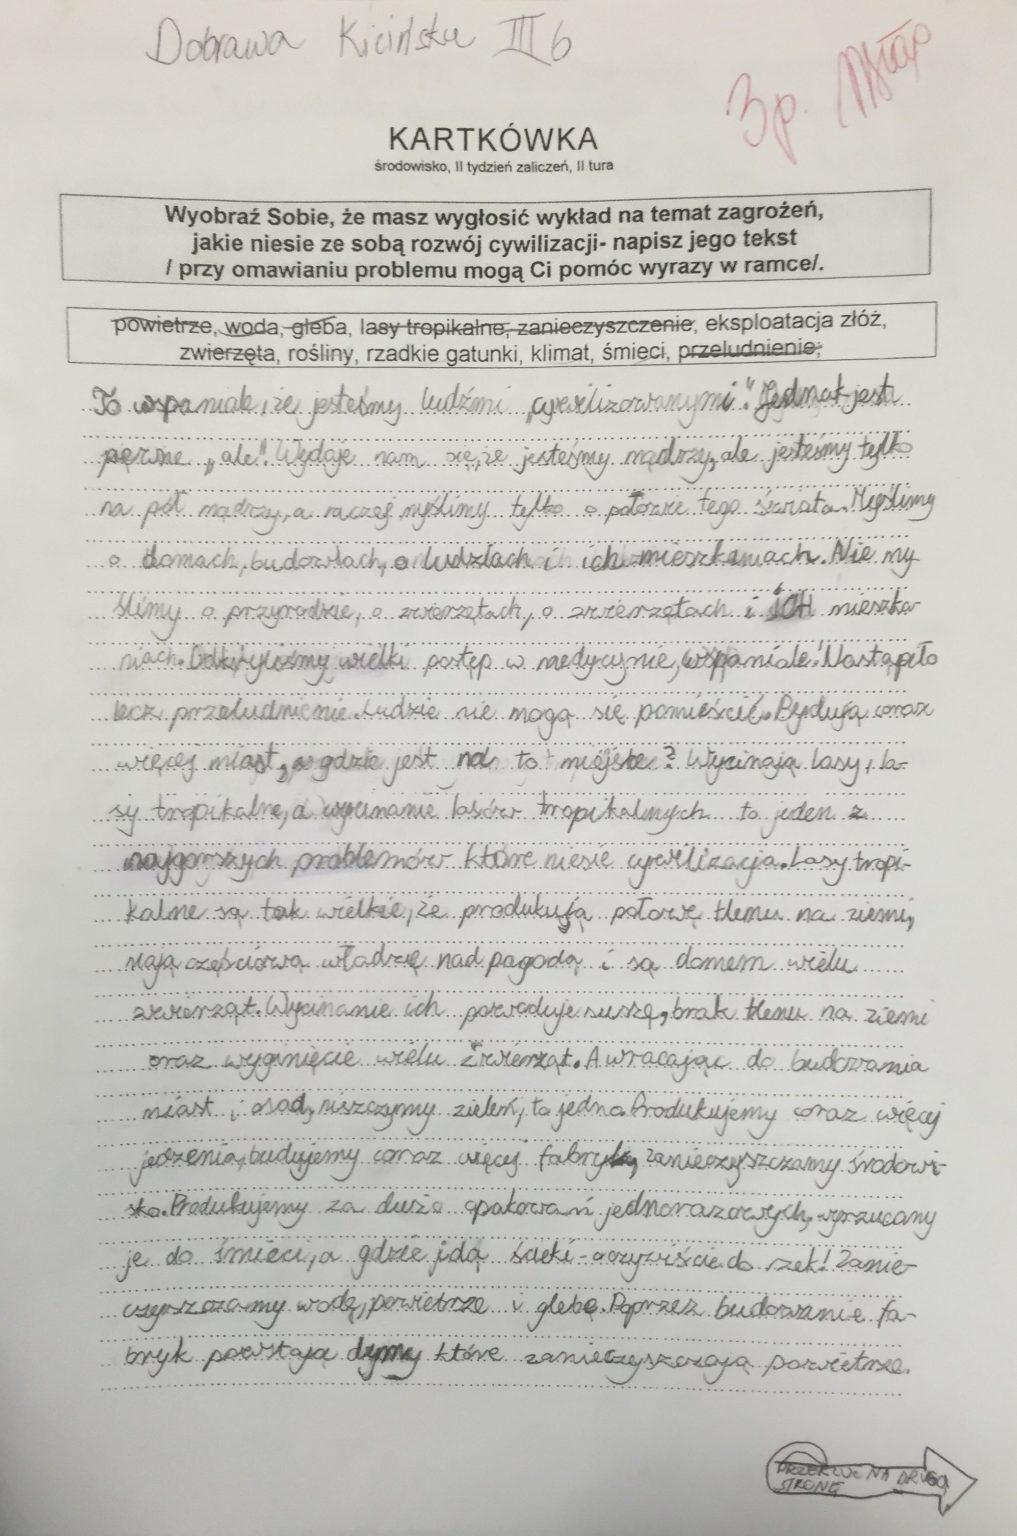 Dobrawa Kicińska III b
3p.
KARTKÓWKA
środowisko, II tydzień zaliczeń, II tura
Wyobraź Sobie, że masz wygłosić wykład na temat zagrożeń,
jakie niesie ze sobą rozwój cywilizacji- napisz jego tekst
/ przy omawianiu problemu mogą Ci pomóc wyrazy w ramce/.
powietrze, woda, gleba, lasy tropikalne, zanieczyszczenie, eksploatacja złóż,
zwierzęta, rośliny, rzadkie gatunki, klimat, śmieci, przeludnienie;
To wspaniale, że jesteśmy ludźmi „cywilizowanymi". Jednak jest
pewne „ale". Wydaje nam się, że jesteśmy mądrzy, ale jesteśmy tylko
na pół mądrzy, a raczej myślimy tylko o połowie tego świata. Myślimy
o domach, budowlach, o ludziach i ich mieszkaniach. Nie my
ślimy o przyrodzie, o zwierzętach, o zwierzętach i ICH mieszka
niach. Odkryliśmy wielki postęp w medycynie, wspaniale! Nastąpiło
lecz przeludnienie. Ludzie nie mogą się pomieścić. Budują coraz
więcej miast, a gdzie jest na to miejsce? Wycinają lasy, la-
sy tropikalne, a wycinanie lasów tropikalnych to jeden z
najgorszych problemów które niesie cywilizacja. Lasy tropi-
kalne są tak wielkie, że produkują połowę tlenu na ziemi,
mają częściową władzę nad pogodą i są domem wielu
zwierząt. Wycinanie ich powoduje suszę, brak tlenu na ziemi
oraz wyginięcie wielu zwierząt. A wracając do budowania
miast i osad, niszczymy zieleń, to jedno. Produkujemy coraz więcej
jedzenia, budujemy coraz więcej fabryk, zanieczyszczamy środowi-
sko. Produkujemy za dużo opakowań jednorazowych, wyrzucamy
je do śmieci, a gdzie idą ścieki - oczywiście do rzek! Zanie-
czyszczamy wodę, powietrze i glebę. Poprzez budowanie fa-
bryk powstają dymy które zanieczyszczają powietrze.
NA DRUGĄ
STRONĘ